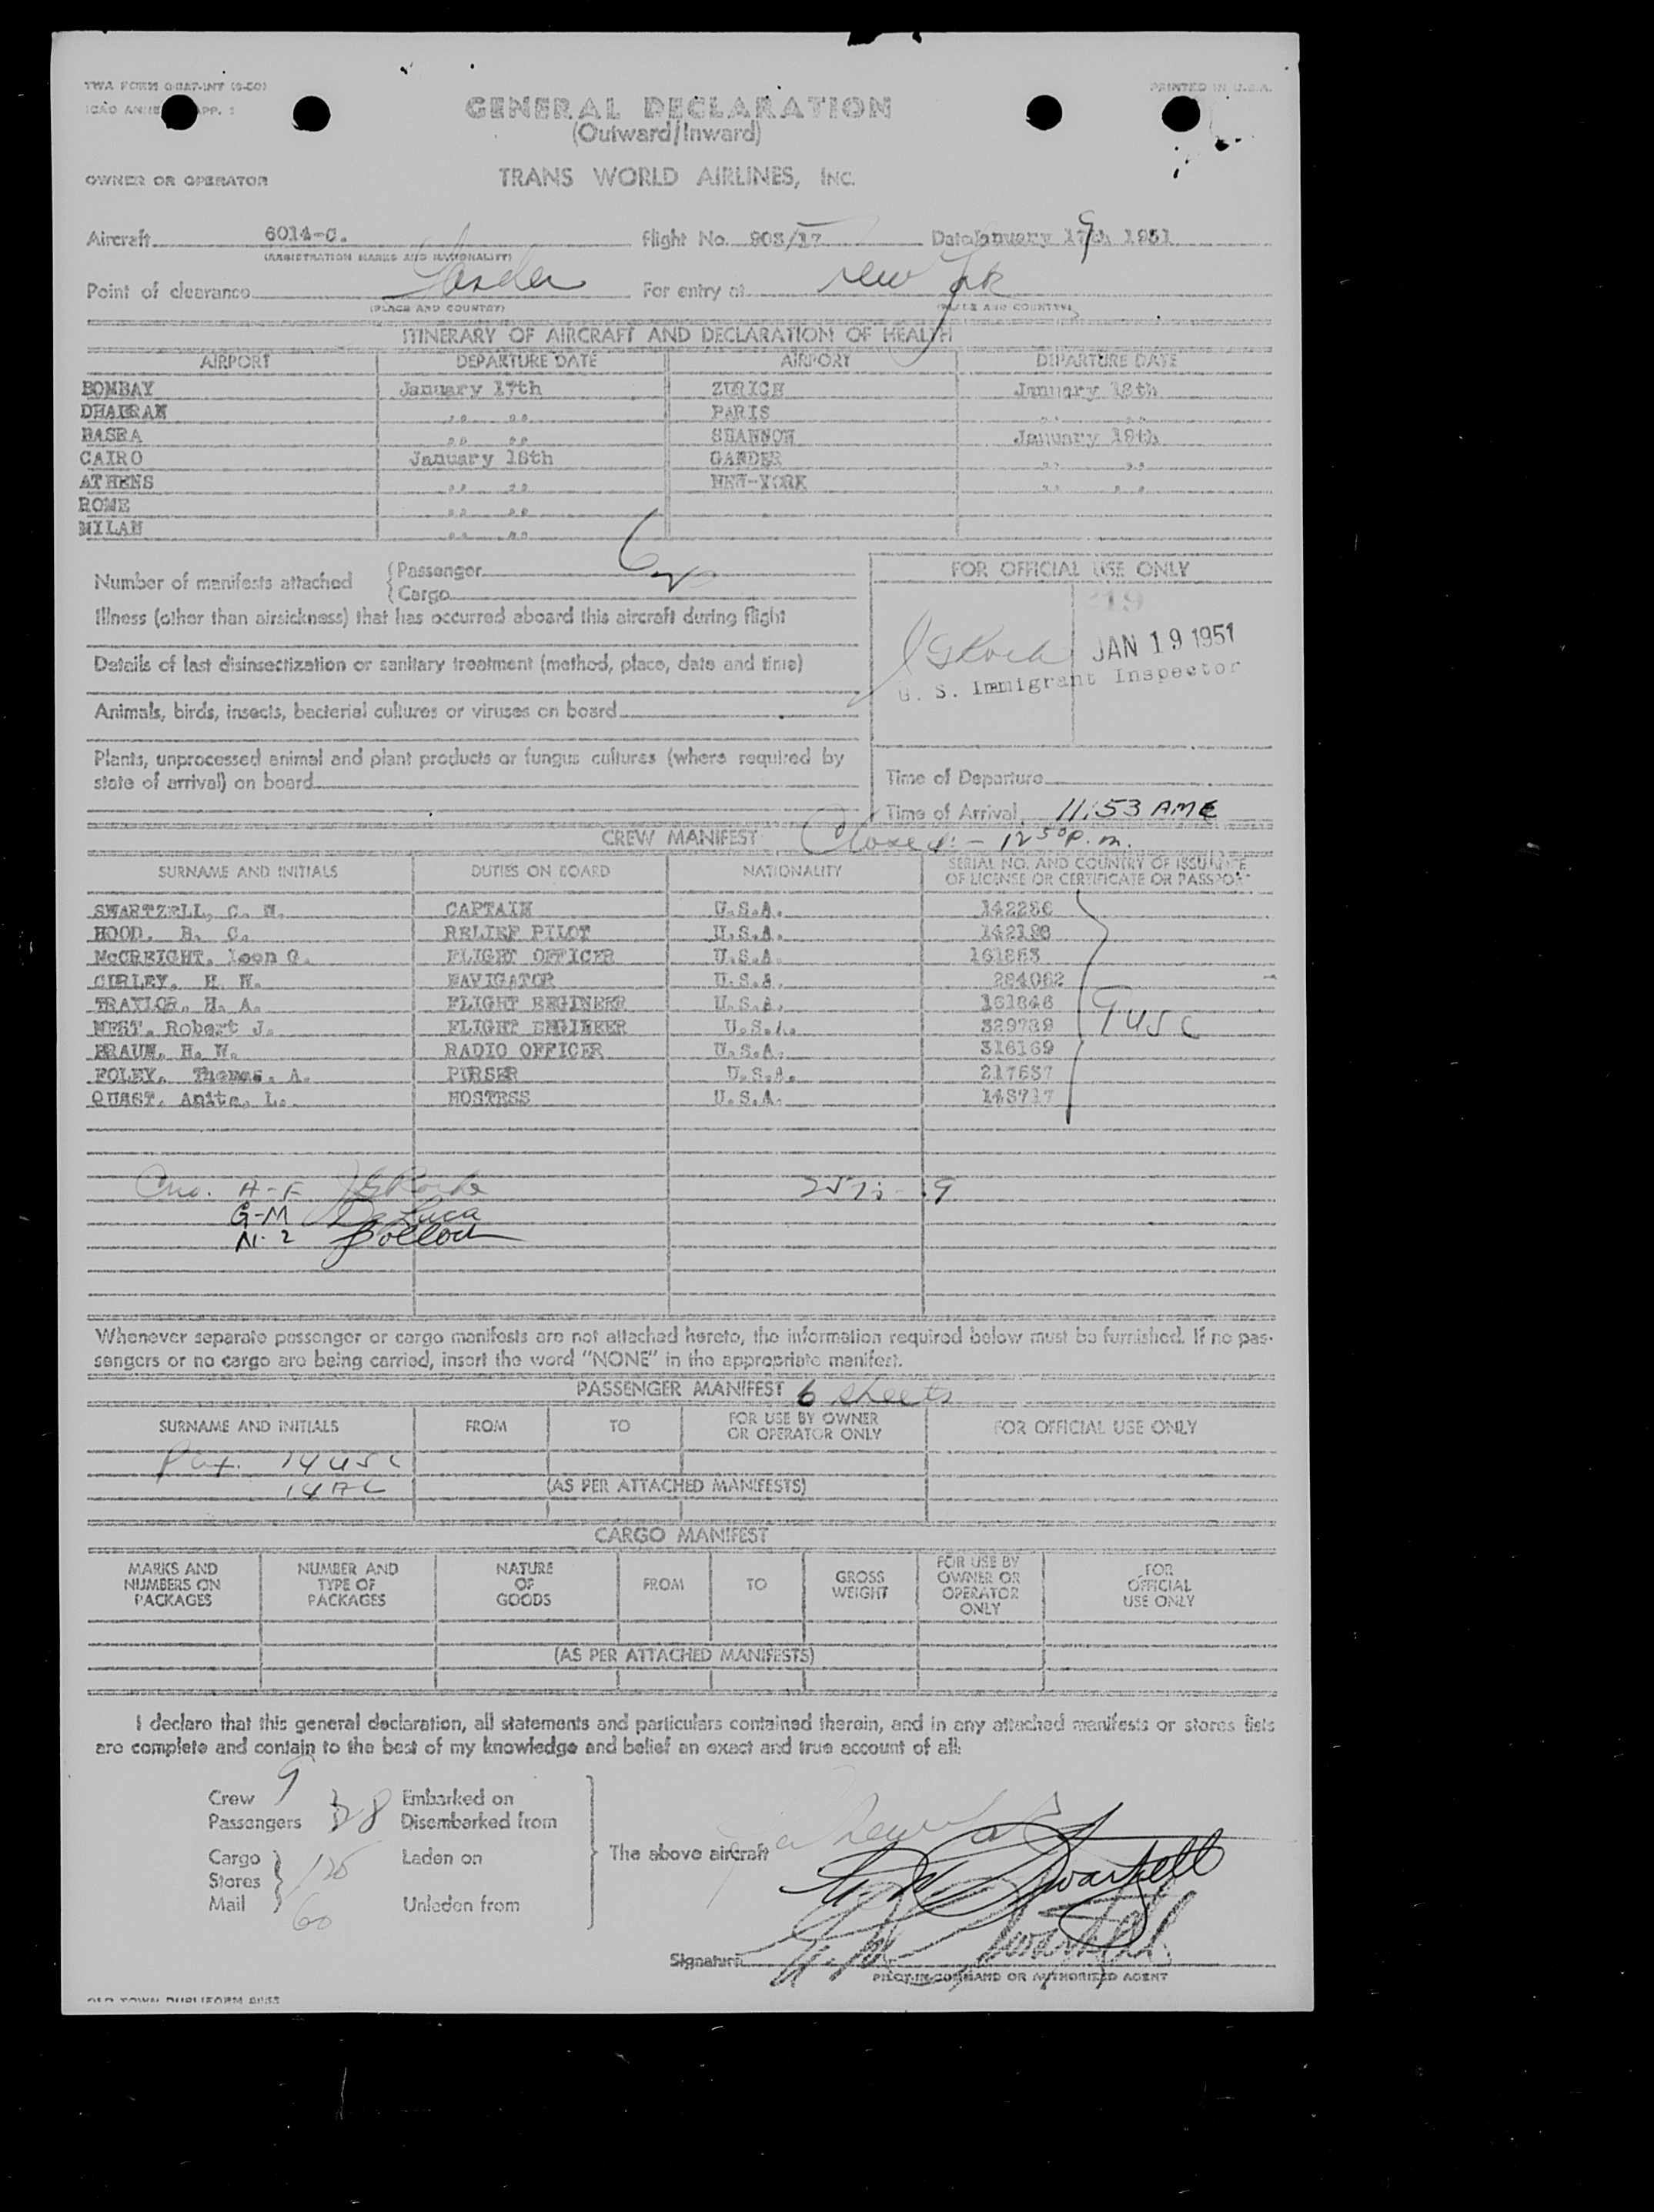 TWA FORM
PRINTED IN U.S.A.
ICAO APP.
GENERAL DECLARATION
(Outward/Inward)
OWNER OR OPERATOR TRANS WORLD AIRLINES, INC.
Aircraft 6014-C. Flight No. 903/17 Date January 17th 1951 9
(REGISTRATION MARKS AND NATIONALITY)
Point of clearance Gander For entry at New York
(PLACE AND COUNTRY) (PLACE AND COUNTRY)
ITINERARY OF AIRCRAFT AND DECLARATION OF HEALTH
AIRPORT DEPARTURE DATE AIRPORT DEPARTURE DATE
BOMBAY January 17th ZURICH January 18th
DHAHRAN " " PARIS " "
BASRA " " SHANNON January 19th
CAIRO January 18th GANDER " "
ATHENS " " NEW-YORK " "
ROME " "
MILAN " "
Number of manifests attached Passenger 6
Cargo
FOR OFFICIAL USE ONLY
19
Illness (other than airsickness) that has occurred aboard this aircraft during flight
JAN 19 1951
U. S. Immigrant Inspector
Details of last disinsectization or sanitary treatment (method, place, date and time)
Animals, birds, insects, bacterial cultures or viruses on board
Plants, unprocessed animal and plant products or fungus cultures (where required by
state of arrival) on board
Time of Departure
Time of Arrival 11:53 AM E
CREW MANIFEST Closed:- 12 50 P.m.
SURNAME AND INITIALS DUTIES ON BOARD NATIONALITY SERIAL NO. AND COUNTRY OF ISSUANCE
OF LICENSE OR CERTIFICATE OR PASSPORT
SWARTZELL, C. W. CAPTAIN U.S.A. 142286
HOOD. B. C. RELIEF PILOT U.S.A.
McCREIGHT. leon G. FLIGHT OFFICER U.S.A.
CURLEY. H. W. NAVIGATOR U.S.A. 284062
TRAYLOR. H. A. FLIGHT ENGINEER U.S.A. 161846
WEST. Robert J. FLIGHT ENGINEER U.S.A. 329739 9 USC
BRAUN. H. W. RADIO OFFICER U.S.A. 316169
FOLEY. Thomas. A. PURSER U.S.A. 217637
QUAST. Anita. L. HOSTESS U.S.A. 143717
A-F
G-M De Luca
N-Z Pollock
Whenever separate passenger or cargo manifests are not attached hereto, the information required below must be furnished. If no pas-
sengers or no cargo are being carried, insert the word "NONE" in the appropriate manifest.
PASSENGER MANIFEST 6 sheets
SURNAME AND INITIALS FROM TO FOR USE BY OWNER
OR OPERATOR ONLY FOR OFFICIAL USE ONLY
Pax. 14 USC
14 AL
(AS PER ATTACHED MANIFESTS)
CARGO MANIFEST
MARKS AND
NUMBERS ON
PACKAGES
NUMBER AND
TYPE OF
PACKAGES
NATURE
OF
GOODS
FROM
TO
GROSS
WEIGHT
FOR USE BY
OWNER OR
OPERATOR
ONLY
FOR
OFFICIAL
USE ONLY
(AS PER ATTACHED MANIFESTS)
I declare that this general declaration, all statements and particulars contained therein, and in any attached manifests or stores lists
are complete and contain to the best of my knowledge and belief an exact and true account of all:
Crew 9 Embarked on
Passengers 28 Disembarked from
Cargo Laden on
Stores
Mail 60 Unladen from
The above aircraft
C. W. Swartzell
Signature C. W. Swartzell
PILOT-IN-COMMAND OR AUTHORIZED AGENT